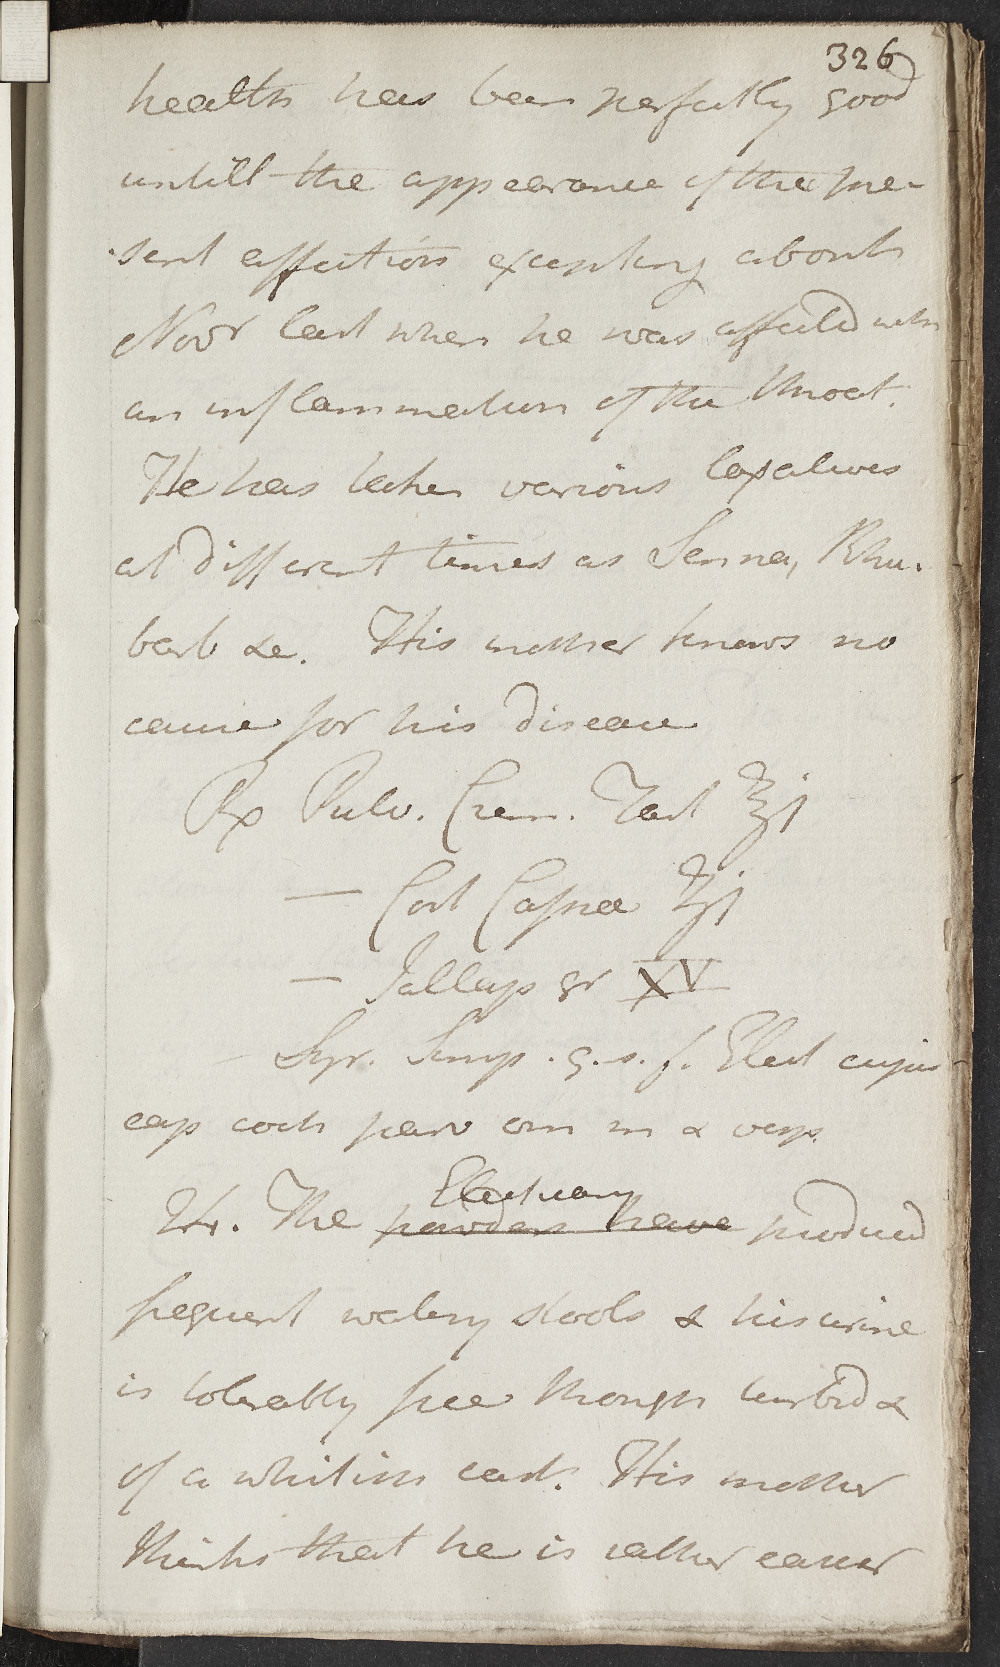 326
health has been perfectly good
untill the appearance of the pre-
sent affection excepting about
Novr last when he was affected with
an inflammation of the throat.
He has taken various laxatives
at different times as Senna, Rhu-
barb &c. His mother knows no
cause for his disease
Rx Pulv. Crem. Tart ℥j
— Cort Cassiae ʒj
— Jallap gr XV
Syr. Simp. q.s. f. Elect cujus
cap coch parv om m & vesp.
24. The Electuary
powders have produced
frequent watery stools & his urine
is tolerably free though turbid &
of a whitish cast. His mother
thinks that he is rather easier